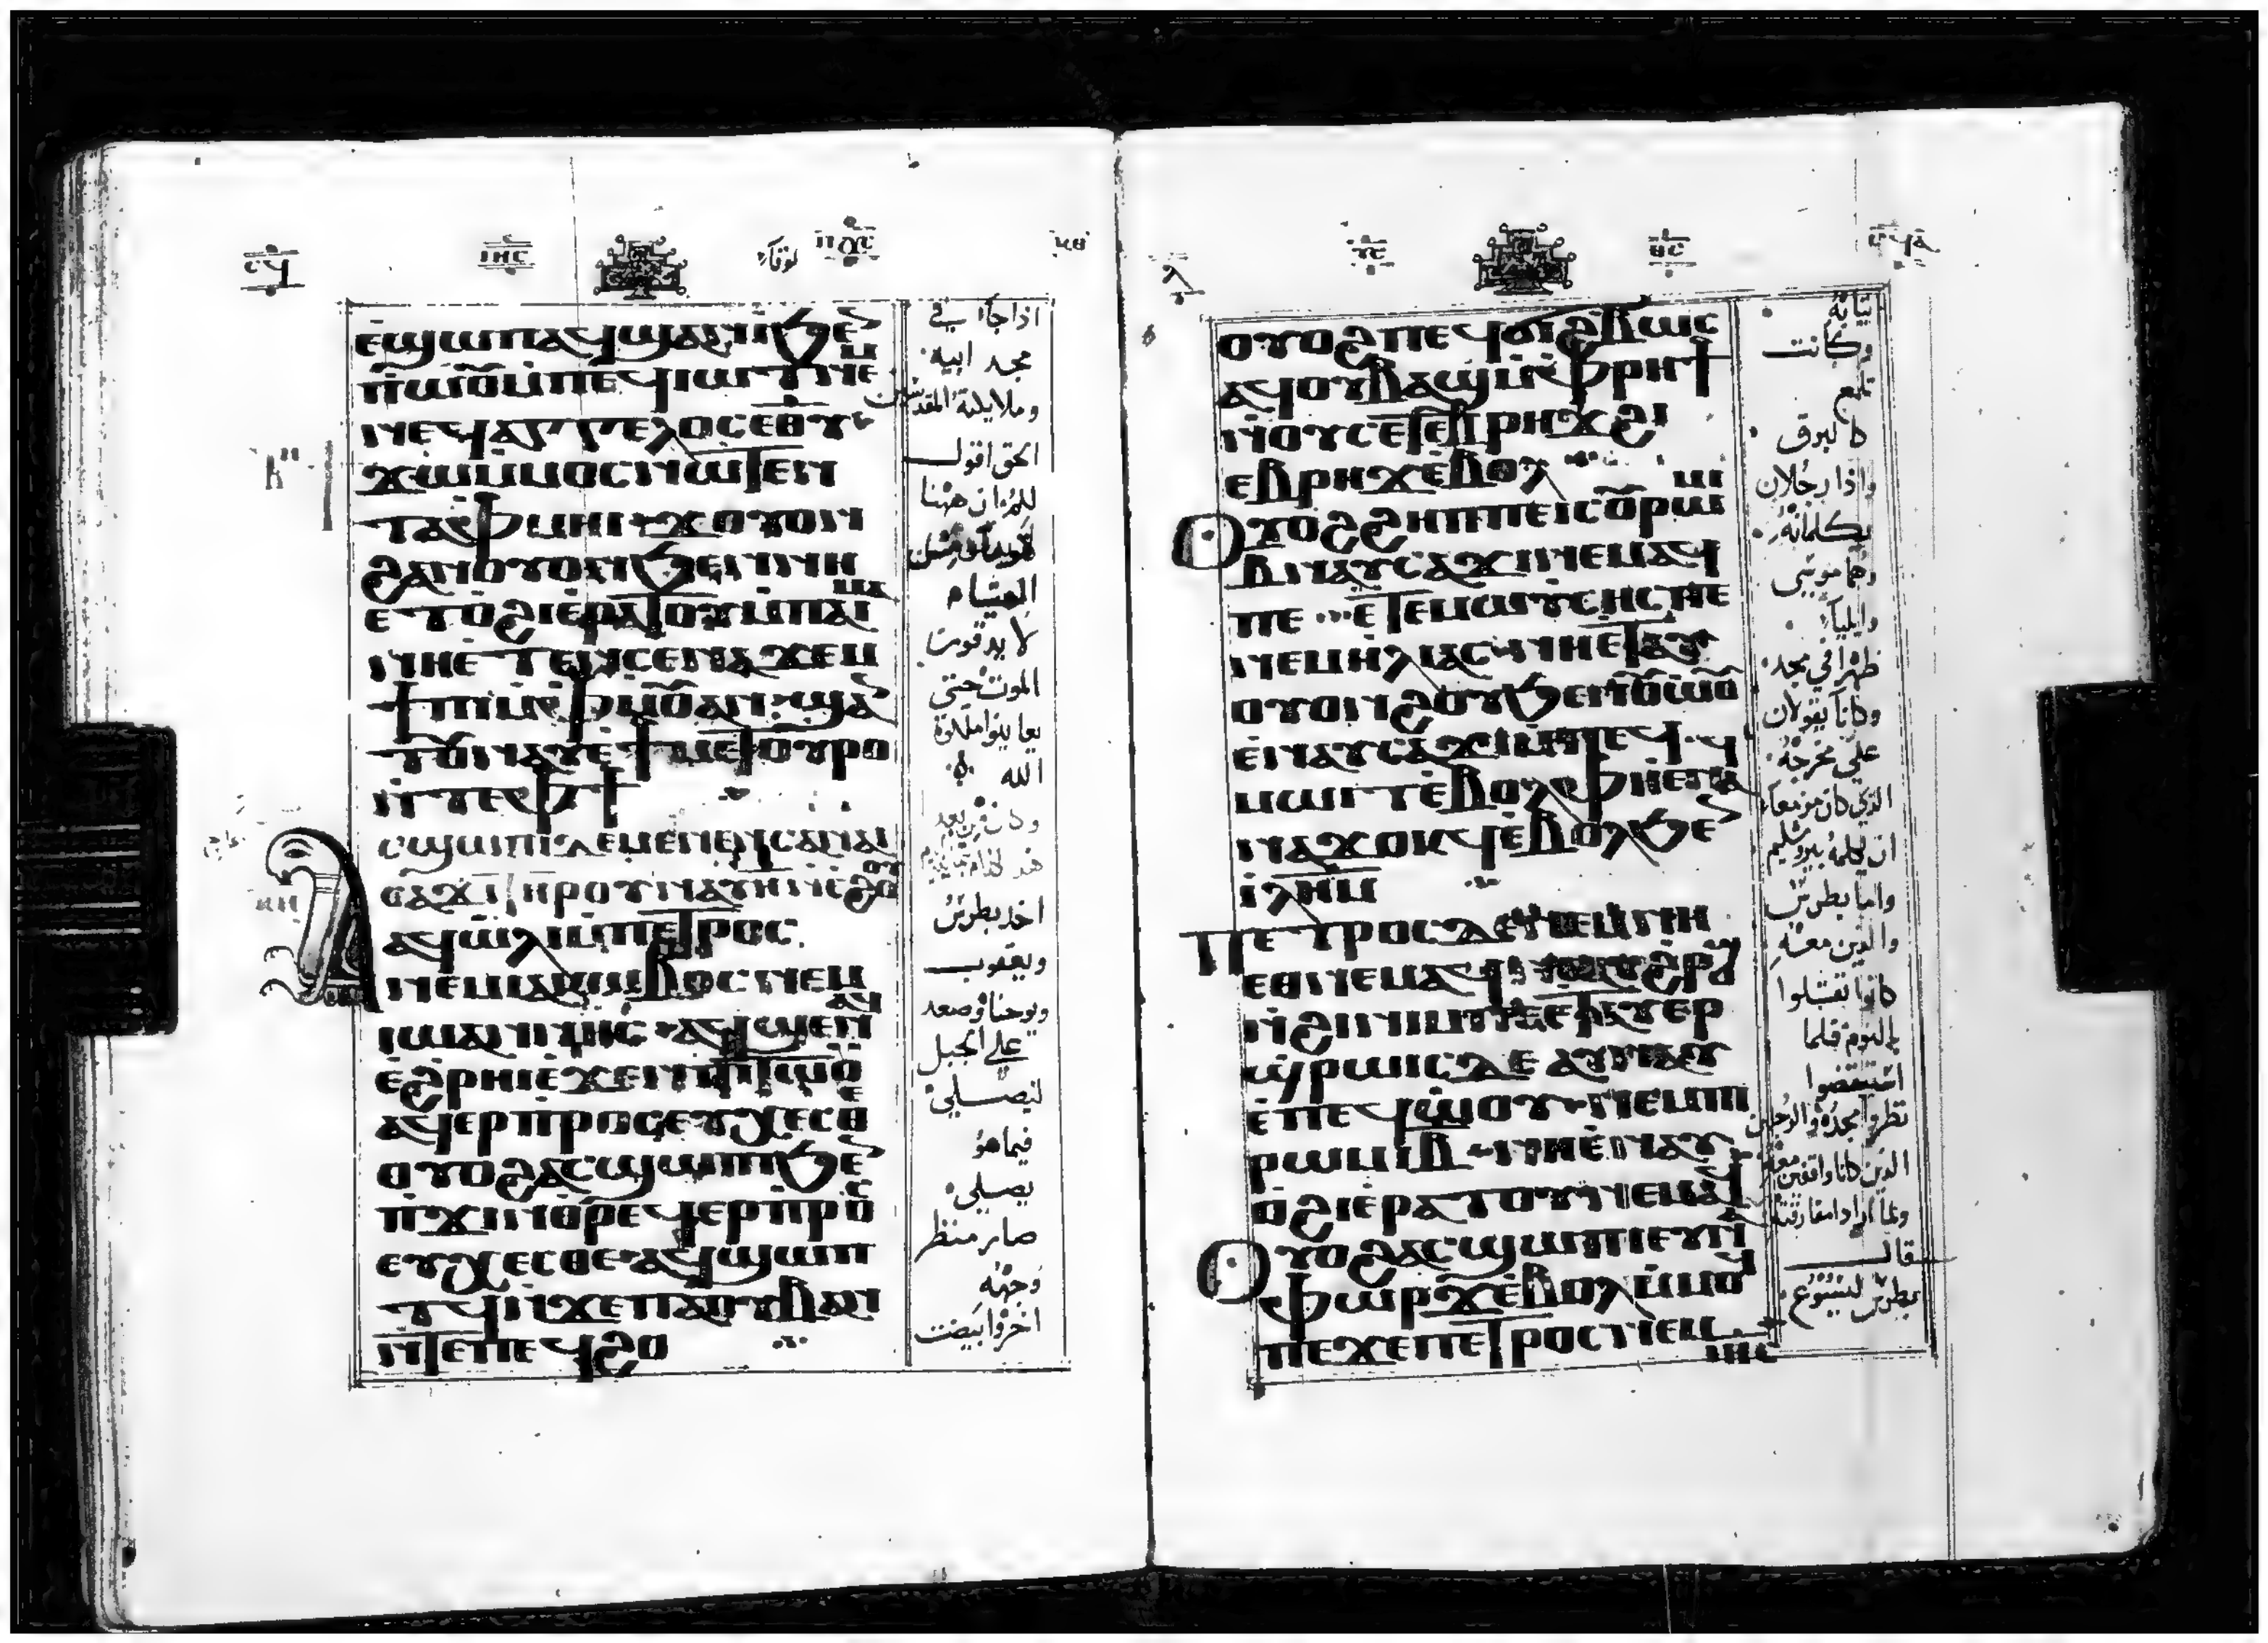 ⲉϣⲱⲡ ⲁϥϣⲁⲛⲓ ϧⲉⲛ
ⲡⲱⲟⲩ ⲙⲡⲉϥⲓⲱⲧ ⲛⲉⲙ
ⲛⲉϥⲁⲅⲅⲉⲗⲟⲥ ⲉⲑⲩ
ϫⲱ ⲙⲙⲟⲥ ⲛⲱⲧⲉⲛ
ⲧⲁⲫⲙⲏⲓ ϫⲉ ⲟⲩⲟⲛ
ϩⲁⲛⲟⲩⲟⲛ ϧⲉⲛ ⲛⲏ
ⲉⲧⲟϩⲓ ⲉⲣⲁⲧⲟⲩ ⲙⲡⲁⲓⲙⲁ
ⲛⲏⲉⲧⲉⲛⲥⲉⲛⲁϫⲉⲙ
ϯⲡⲓ ⲙⲫⲙⲟⲩ ⲁⲛ ϣⲁ
ⲧⲟⲩⲛⲁⲩ ⲉϯⲙⲉⲧⲟⲩⲣⲟ
ⲛⲧⲉ ⲫϯ
ⲁⲥϣⲱⲡⲓ ⲇⲉ ⲙⲉⲛⲉⲛⲥⲁ ⲛⲁⲓ
ⲥⲁϫⲓ
ⲁϥⲱⲗⲓ ⲙⲡⲉⲧⲣⲟⲥ
ⲛⲉⲙ ⲓⲁⲕⲱⲃⲟⲥ ⲛⲉⲙ
ⲓⲱⲁⲛⲛⲏⲥ ⲁϥϣⲉⲛⲁϥ
ⲉϩⲣⲏⲓ ⲉϫⲉⲛ ⲡⲓⲧⲱⲟⲩ
ⲁϥⲉⲣⲡⲣⲟⲥⲉⲩⲭⲉⲥⲑⲉ
ⲟⲩⲟϩ ⲁⲥϣⲱⲡⲓ ϧⲉⲛ
ⲡϫⲓⲛⲑⲣⲉϥⲉⲣⲡⲣⲟⲥ
ⲉⲩⲭⲉⲥⲑⲉ ⲁϥϣⲱⲡ
ⲛϫⲉ ⲡⲁⲟⲩⲃⲁⲛ
ⲛⲧⲉ ⲡⲉϥϩⲟ
اذا جاا في
مجد ابيه
وملايكته المقدسين
الحق اقول
لكم ان ههنا
لا يدقون
الموت حتى
يعاينوا ملكوة
الله
اخد بطرس
ويعقوب
ويوحنا وصعد
على الجبل
ليصلي
فيما هو
يصلي
صار منظر
وجهه
اخر وابيضت
ⲟⲩⲟϩ ⲡⲉϥϩⲃⲱⲥ
ⲁϥⲟⲩⲃⲁϣ ⲙⲫⲣⲏϯ
ⲛⲟⲩⲥⲉⲧⲉⲃⲣⲏϫ ϩⲓ
ⲉⲃⲣⲏϫ ⲉⲃⲟⲗ
ⲟⲩⲟϩ ϩⲏⲡⲡⲉ ⲓⲥ ⲟⲩⲣⲱⲙⲓ
ⲃ ⲛⲁⲩⲥⲁϫⲓ ⲛⲉⲙⲁϥ
ⲡⲉ ⲉⲧⲉ ⲙⲱⲩⲥⲏⲥ ⲡⲉ
ⲛⲉⲙ ⲏⲗⲓⲁⲥ ⲛⲏⲉⲧⲁⲩ
ⲟⲩⲟⲛϩⲟⲩ ϧⲉⲛ ⲟⲩⲱⲟⲩ
ⲉⲛⲁⲩⲥⲁϫⲓ ⲙⲡⲉϥ
ⲙⲱⲓⲧ ⲉⲃⲟⲗ ⲫⲏⲉⲛⲁ
ⲛⲁϫⲟⲕϥ ⲉⲃⲟⲗ ϧⲉⲛ
ⲓⲗⲏⲙ
ⲡⲉⲧⲣⲟⲥ ⲇⲉ ⲛⲉⲙ ⲛⲏ
ⲉⲑⲛⲉⲙⲁϥ
ⲛϩⲓⲛⲓⲙ ⲡⲉ ⲉⲧⲁⲩⲉⲣ
ϣⲣⲱⲓⲥ ⲇⲉ ⲁⲩⲛⲁⲩ
ⲉⲡⲉϥⲱⲟⲩ ⲛⲉⲙ ⲡⲓ
ⲣⲱⲙⲓ ⲃ ⲛⲏⲉⲛⲁⲩ
ⲟϩⲓ ⲉⲣⲁⲧⲟⲩ ⲛⲉⲙⲁϥ
ⲟⲩⲟϩ ⲁⲥϣⲱⲡⲓ ⲉⲧⲁⲩ
ⲫⲱⲣϫ ⲉⲃⲟⲗ ⲙⲙⲟϥ
ⲡⲉϫⲉ ⲡⲉⲧⲣⲟⲥ ⲛⲉⲙ ⲓⲏⲥ
ثيابه
وكانت
تلمع
كالبرق
واذا رجلان
يكلمانه
وهما موسى
وايليا
ظهرا في مجد
وكانا يقولان
على مخرجه
الذي كان مزمعا
ان يكمله بيروشليم
واما بطرس
والذين معه
كانوا تقسلوا
بالنوم فلما
استيقضوا
نظروا مجده والرجلين
الذين كانا واقفين معه
ولما ارادا مفارقته
قال
بطرس ليسوع